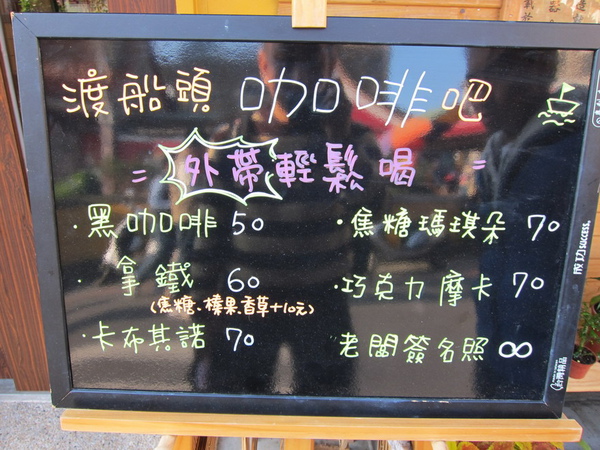 渡船頭 咖啡吧
= 外帶輕鬆喝 =
·黑咖啡 50
·焦糖瑪琪朵 70
·拿鐵 60
(焦糖、榛果、香草+10元)
·巧克力摩卡 70
·卡布其諾 70
老闆簽名照 ∞
成功success.
台灣精品